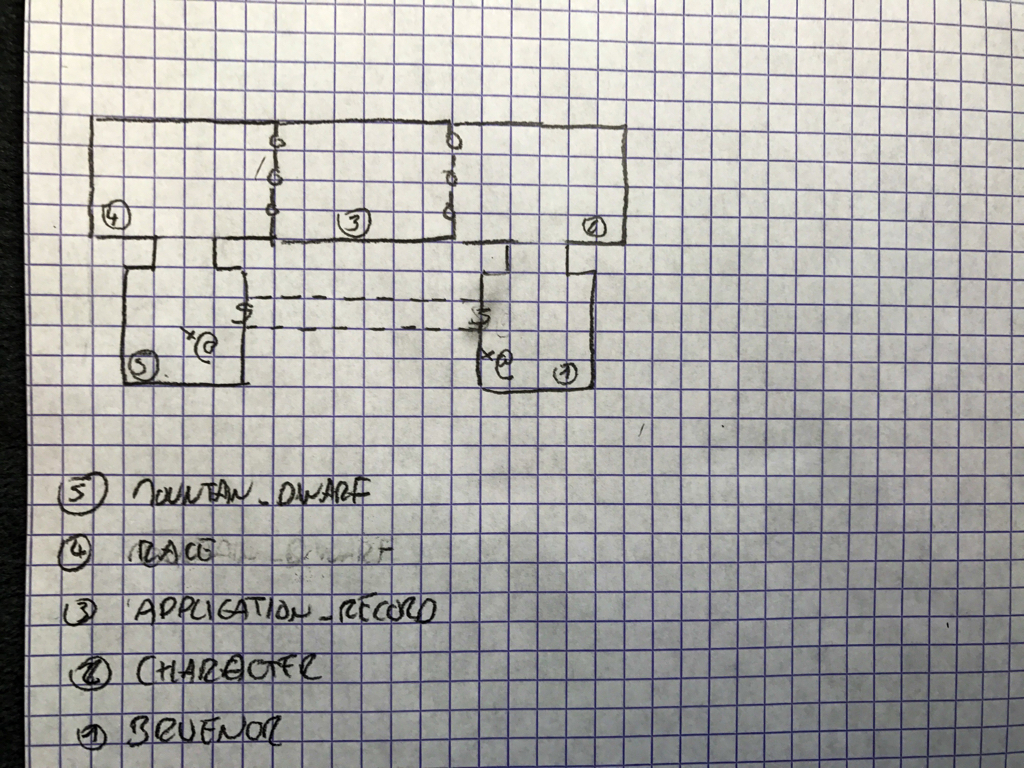 ④ ③ ②
S S
×@ ×@
⑤ ①
⑤ MOUNTAN_DWARF
④ RACE
③ APPLICATION_RECORD
② CHARACTER
① BRUENOR